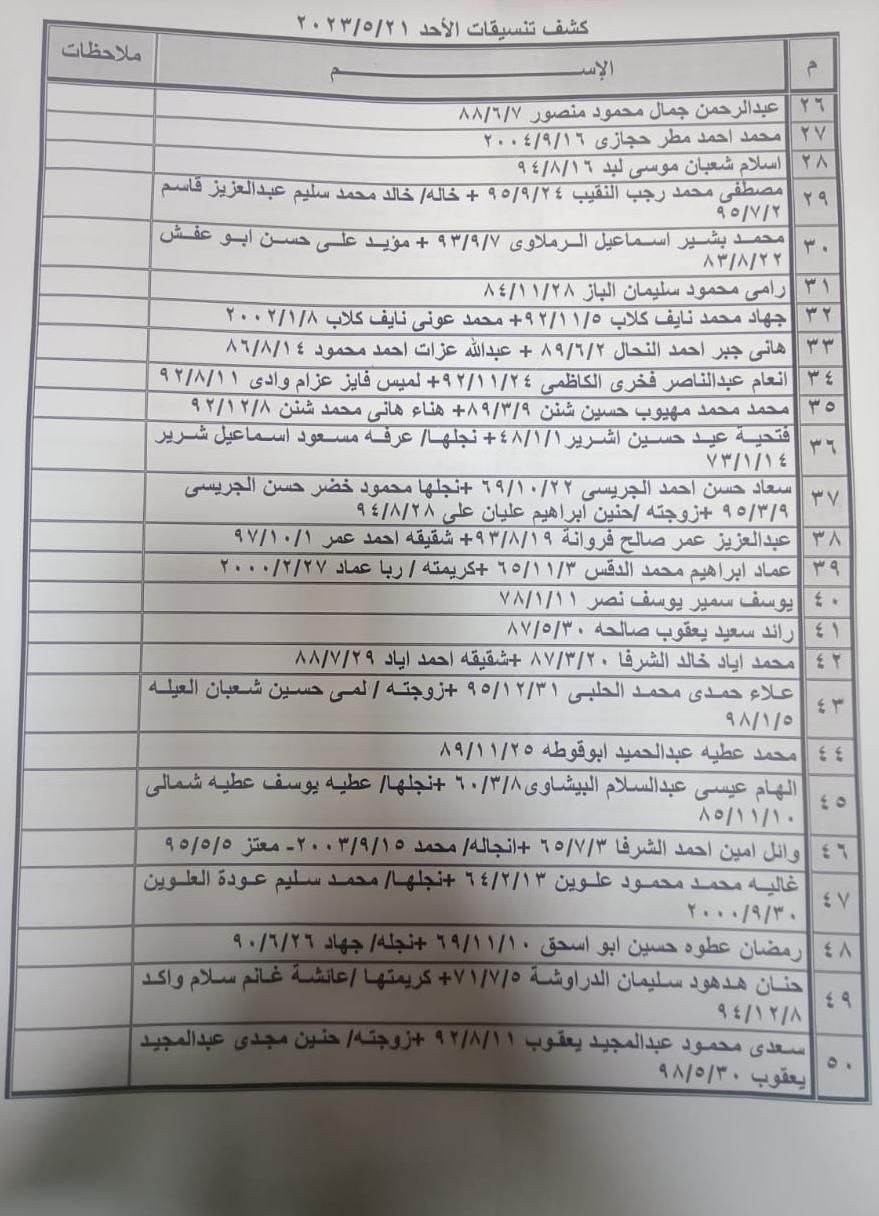 كشف تنسيقات الأحد ٢٠٢٣/٥/٢١
م الإســـــــــــــم ملاحظات
٢٦ عبدالرحمن جمال محمود منصور ٨٨/٦/٧
٢٧ محمد احمد مطر حجازى ٢٠٠٤/٩/١٦
٢٨ اسلام شعبان موسى لبد ٩٤/٨/١٦
٢٩ مصطفى محمد رجب النقيب ٩٥/٩/٢٤ + خاله/ خالد محمد سليم عبدالعزيز قاسم
٩٥/٧/٢
٣٠ محمد بشير اسماعيل الرملاوى ٩٣/٩/٧ + مؤيد على حسن ابو عفش
٨٣/٨/٢٢
٣١ رامى محمود سليمان الباز ٨٤/١١/٢٨
٣٢ جهاد محمد نايف كلاب ٩٢/١١/٥+ محمد عونى نايف كلاب ٢٠٠٢/١/٨
٣٣ هانى جبر احمد النحال ٨٩/٦/٢ + عبدالله عزات احمد محمود ٨٦/٨/١٤
٣٤ انعام عبدالناصر فخرى الكاظمى ٩٢/١١/٢٤+ لميس فايز عزام وادى ٩٢/٨/١١
٣٥ محمد محمد مهيوب حسين شنن ٨٩/٣/٩+ هناء هانى محمد شنن ٩٢/١٢/٨
٣٦ فتحية عيد حسين اشرير ٤٨/١/١+ نجلها/ عرفه مسعود اسماعيل شرير
٧٣/١/١٤
٣٧ سعاد حسن احمد الجريسى ٦٩/١٠/٢٢ +نجلها محمود خضر حسن الجريسى
٩٥/٣/٩ +زوجته /حنين ابراهيم عليان على ٩٤/٨/٢٨
٣٨ عبدالعزيز عمر صالح فروانة ٩٣/٨/١٩+ شقيقه احمد عمر ٩٧/١٠/١
٣٩ عماد ابراهيم محمد الدقس ٦٥/١١/٣ +كريمته / ربا عماد ٢٠٠٠/٢/٢٧
٤٠ يوسف سمير يوسف نصر ٧٨/١/١١
٤١ رائد سعيد يعقوب صالحه ٨٧/٥/٣٠
٤٢ محمد اياد خالد الشرفا ٨٧/٣/٢٠ +شقيقه احمد اياد ٨٨/٧/٢٩
٤٣ علاء حمدى محمد الحلبى ٩٥/١٢/٣١ +زوجته / لمى حسين شعبان العيله
٩٨/١/٥
٤٤ محمد عطيه عبدالحميد ابوقوطه ٨٩/١١/٢٥
٤٥ الهام عيسى عبدالسلام البيشاوى ٦٠/٣/٨ +نجلها/ عطيه يوسف عطيه شمالى
٨٥/١١/١٠
٤٦ وائل امين احمد الشرفا ٦٥/٧/٣ +انجاله/ محمد ٢٠٠٣/٩/١٥- معتز ٩٥/٥/٥
٤٧ غاليه محمد محمود علوين ٦٤/٢/١٣ +نجلها/ محمد سليم عودة العلوين
٢٠٠٠/٩/٣٠
٤٨ رمضان عطوه حسين ابو اسحق ٦٩/١١/١٠ +نجله/ جهاد ٩٠/٦/٢٦
٤٩ حنان هدهود سليمان الدراوشة ٧١/٧/٥+ كريمتها /عائشة غانم سلام واكد
٩٤/١٢/٨
٥٠ سعدى محمود عبدالمجيد يعقوب ٩٢/٨/١١ +زوجته/ حنين مجدى عبدالمجيد
يعقوب ٩٨/٥/٣٠